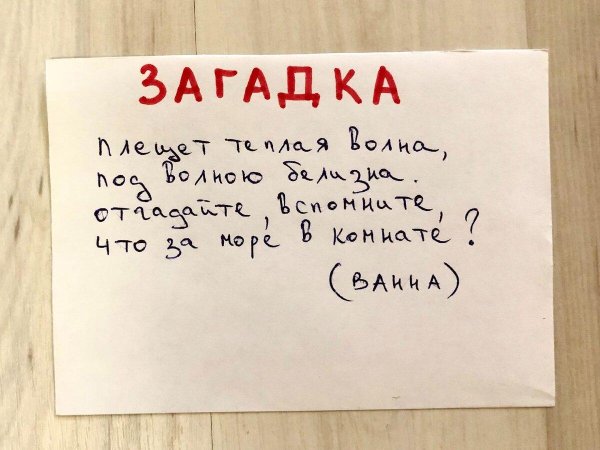 ЗАГАДКА
плещет теплая волна,
под волною белизна.
отгадайте, вспомните,
что за море в комнате?
(ВАННА)